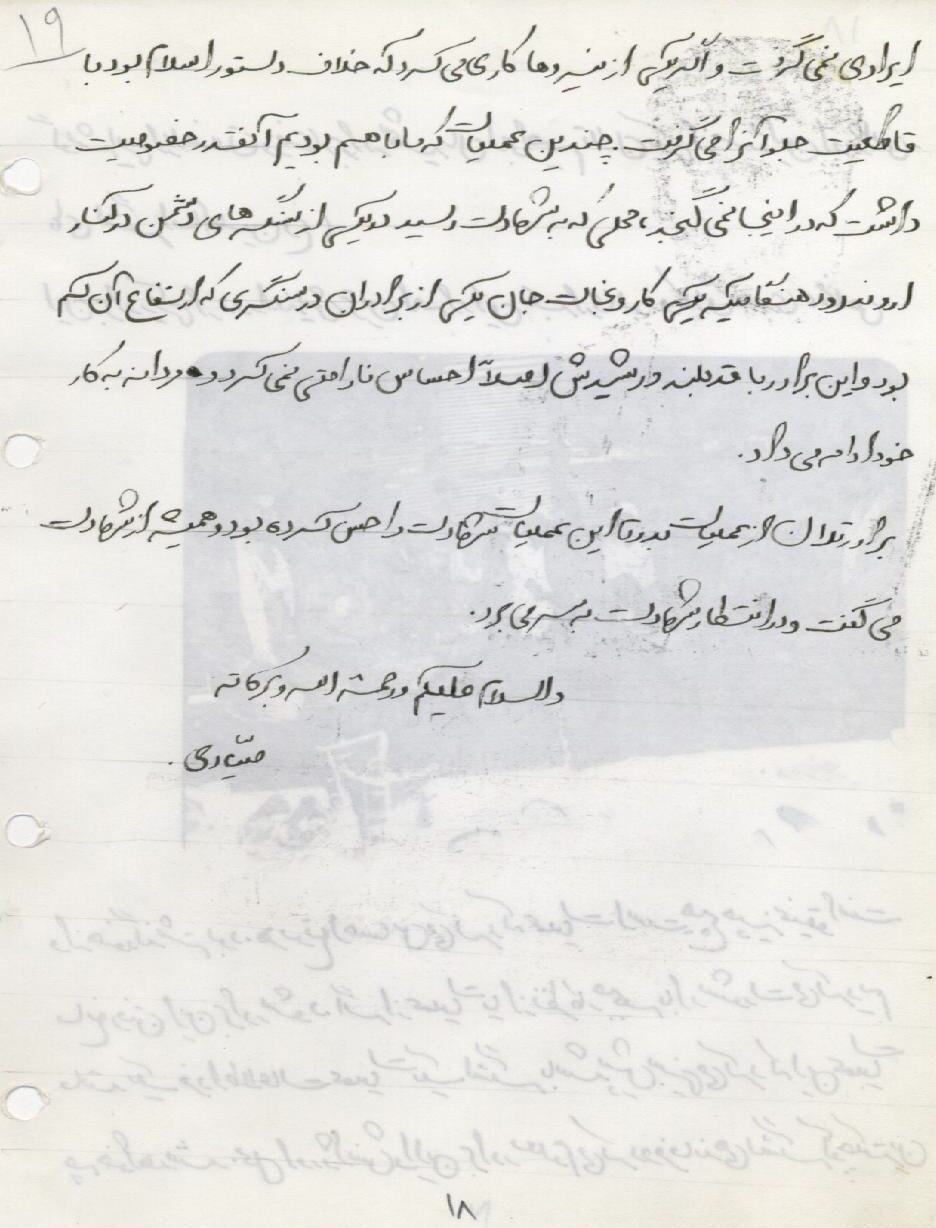 ۱۹
ایرادی نمی گرفت و اگر یکی از نیروها کاری می کرد که خلاف دستور اسلام بود با
قاطعیت جلو آنرا می گرفت. چندین عملیات که ما با هم بودیم آنقدر خصوصیت
داشت که در اینجا نمی گنجد، محلی که به شهادت رسید در یکی از سنگرهای دشمن در کنار
اروند رود هنگامیکه یکی کار و نجات جان یکی از برادران در سنگری که ارتفاع آن کم
بود و این برادر با قد بلند و رشیدش اصلاً احساس ناراحتی نمی کرد و مردانه به کار
خود ادامه می داد.
برادر از عملیات بدر تا این عملیات شهادت را حس کرده بود و همیشه از شهادت
می گفت و در انتظار شهادت به سر می برد.
والسلام علیکم و رحمته الله و برکاته
صیادی.
۱۸